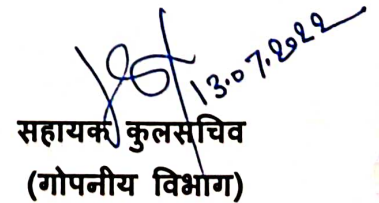 13.07.2022
सहायक कुलसचिव
(गोपनीय विभाग)